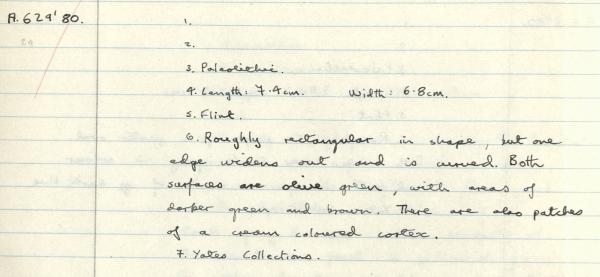 A.629'80.
1.
2.
3. Paleolithic.
4. Length: 7.4cm. Width: 6.8cm.
5. Flint.
6. Roughly rectangular in shape, but one
edge widens out and is curved. Both
surfaces are olive green, with areas of
darker green and brown. There are also patches
of a cream coloured cortex.
7. Yates Collections.